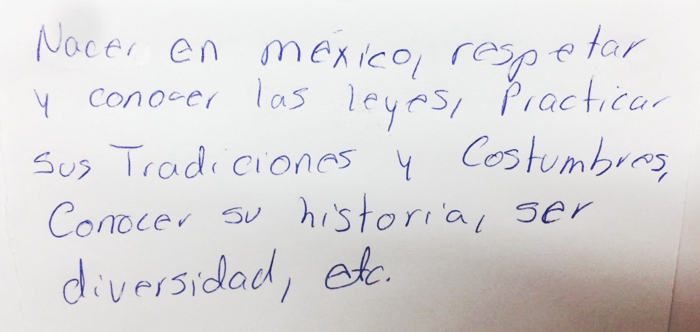 Nacer en méxico, respetar
y conocer las leyes, Practicar
sus Tradiciones y Costumbres,
Conocer su historia, ser
diversidad, etc.